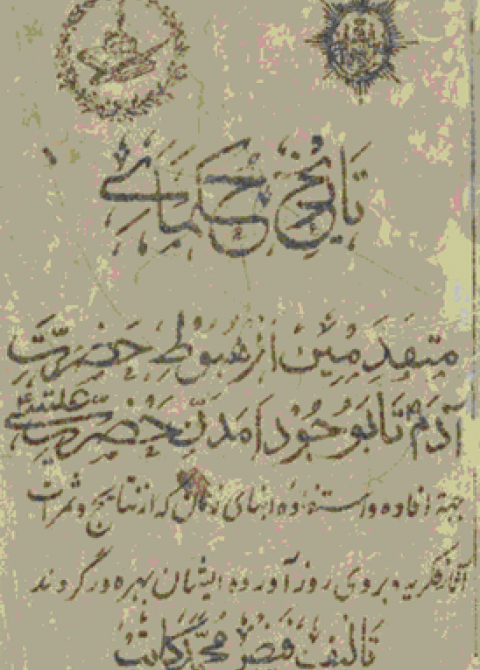 تاریخ حکمای
متقدمین از هبوط حضرت
آدم تا بوجود آمدن حضرت
جهة افاده و استفاده ابنای زمان که از نتایج و ثمرات
آثار فکریه و بروی روز آورده ایشان بهره ور گردند
تالیف فیض محمد کاتب